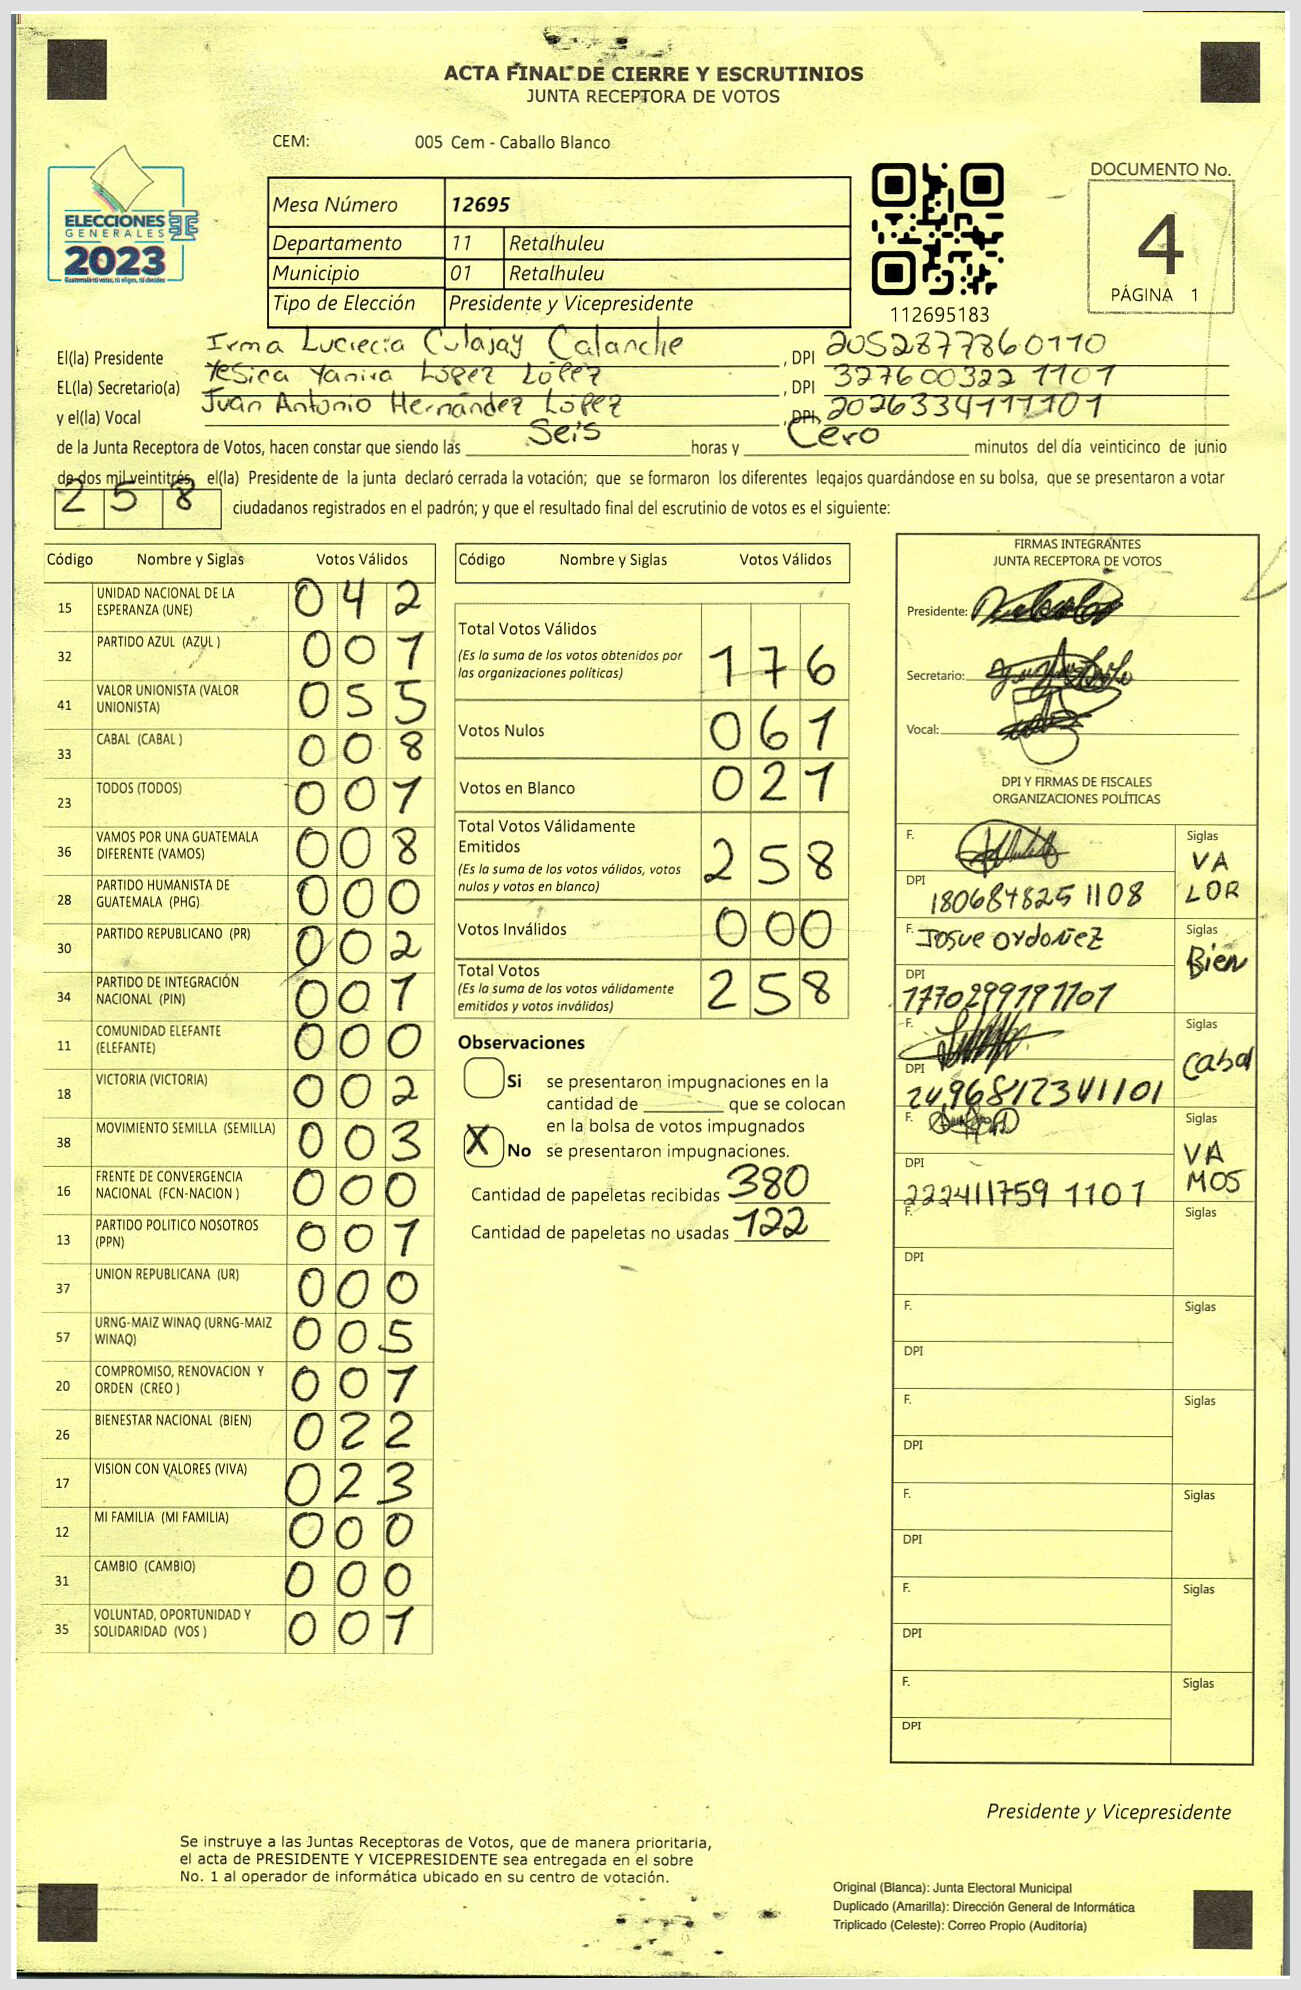 ACTA FINAL DE CIERRE Y ESCRUTINIOS
JUNTA RECEPTORA DE VOTOS
CEM: 005 Cem - Caballo Blanco
ELECCIONES
GENERALES
2023
Guatemala tú votas, tú eliges, tú decides
Mesa Número 12695
Departamento 11 Retalhuleu
Municipio 01 Retalhuleu
Tipo de Elección Presidente y Vicepresidente
112695183
DOCUMENTO No.
4
PÁGINA 1
El(la) Presidente Irma Lucrecia Culajay Calanche , DPI 2052877860110
EL(la) Secretario(a) Yesica Yanira López López , DPI 327600322 1101
y el(la) Vocal Juan Antonio Hernández López , DPI, 2026334111101
de la Junta Receptora de Votos, hacen constar que siendo las Seis horas y Cero minutos del día veinticinco de junio
de dos mil veintitrés, el(la) Presidente de la junta declaró cerrada la votación; que se formaron los diferentes legajos guardándose en su bolsa, que se presentaron a votar
258 ciudadanos registrados en el padrón; y que el resultado final del escrutinio de votos es el siguiente:
Código Nombre y Siglas Votos Válidos
15 UNIDAD NACIONAL DE LA ESPERANZA (UNE) 042
32 PARTIDO AZUL (AZUL ) 001
41 VALOR UNIONISTA (VALOR UNIONISTA) 055
33 CABAL (CABAL ) 008
23 TODOS (TODOS) 001
36 VAMOS POR UNA GUATEMALA DIFERENTE (VAMOS) 008
28 PARTIDO HUMANISTA DE GUATEMALA (PHG) 000
30 PARTIDO REPUBLICANO (PR) 002
34 PARTIDO DE INTEGRACIÓN NACIONAL (PIN) 001
11 COMUNIDAD ELEFANTE (ELEFANTE) 000
18 VICTORIA (VICTORIA) 002
38 MOVIMIENTO SEMILLA (SEMILLA) 003
16 FRENTE DE CONVERGENCIA NACIONAL (FCN-NACION ) 000
13 PARTIDO POLITICO NOSOTROS (PPN) 001
37 UNION REPUBLICANA (UR) 000
57 URNG-MAIZ WINAQ (URNG-MAIZ WINAQ) 005
20 COMPROMISO, RENOVACION Y ORDEN (CREO ) 001
26 BIENESTAR NACIONAL (BIEN) 022
17 VISION CON VALORES (VIVA) 023
12 MI FAMILIA (MI FAMILIA) 000
31 CAMBIO (CAMBIO) 000
35 VOLUNTAD, OPORTUNIDAD Y SOLIDARIDAD (VOS ) 001
Código Nombre y Siglas Votos Válidos
Total Votos Válidos 176
(Es la suma de los votos obtenidos por
las organizaciones políticas)
Votos Nulos 061
Votos en Blanco 021
Total Votos Válidamente
Emitidos 258
(Es la suma de los votos válidos, votos
nulos y votos en blanco)
Votos Inválidos 000
Total Votos 258
(Es la suma de los votos válidamente
emitidos y votos inválidos)
Observaciones
Si se presentaron impugnaciones en la
cantidad de ________ que se colocan
en la bolsa de votos impugnados
X No se presentaron impugnaciones.
Cantidad de papeletas recibidas 380
Cantidad de papeletas no usadas 122
FIRMAS INTEGRANTES
JUNTA RECEPTORA DE VOTOS
Presidente:
Secretario:
Vocal:
DPI Y FIRMAS DE FISCALES
ORGANIZACIONES POLÍTICAS
F. Siglas VA LOR
DPI 180684825 1108
F. Josue Ordoñez Siglas Bien
DPI 1770299191101
F. Siglas Cabal
DPI 2496812341101
F. Siglas VA MOS
DPI 222411759 1101
F. Siglas
DPI
F. Siglas
DPI
F. Siglas
DPI
F. Siglas
DPI
F. Siglas
DPI
F. Siglas
DPI
Presidente y Vicepresidente
Se instruye a las Juntas Receptoras de Votos, que de manera prioritaria,
el acta de PRESIDENTE Y VICEPRESIDENTE sea entregada en el sobre
No. 1 al operador de informática ubicado en su centro de votación.
Original (Blanca): Junta Electoral Municipal
Duplicado (Amarilla): Dirección General de Informática
Triplicado (Celeste): Correo Propio (Auditoría)